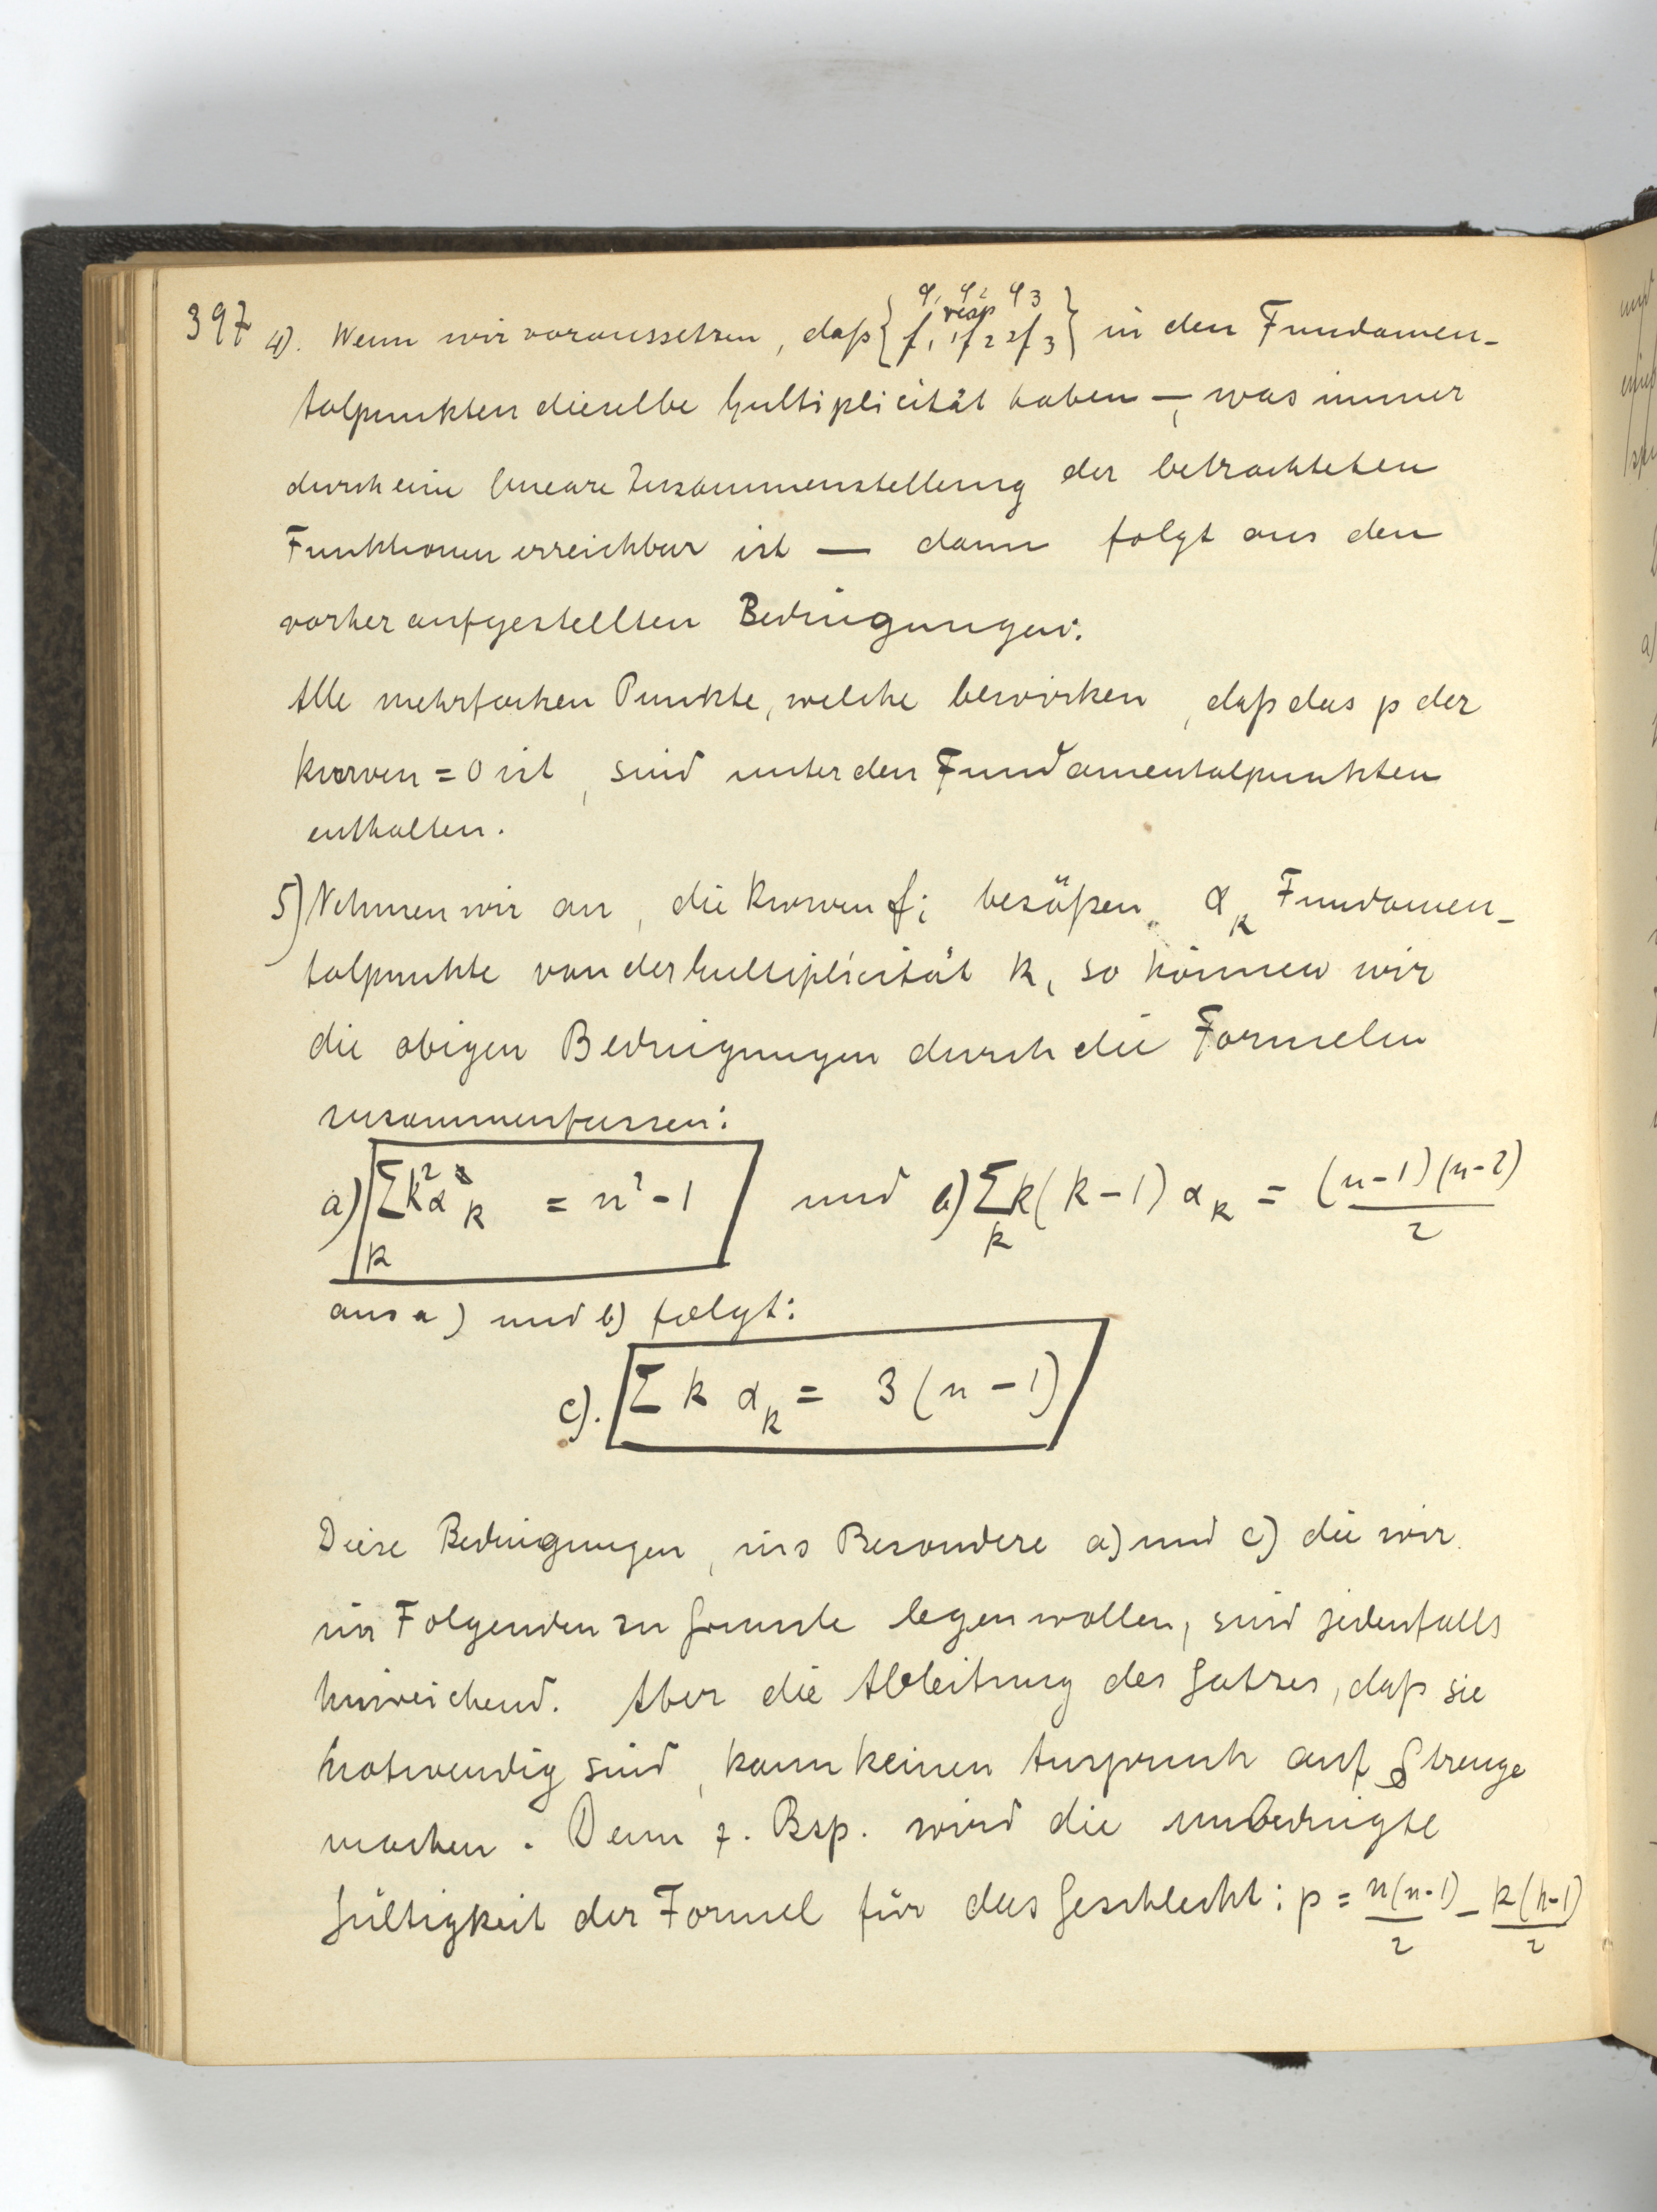 397 4). Wenn wir voraussetzen, daß { φ1 φ2 φ3 resp f1, f2, f3 } in den Fundamen-
talpunkten dieselbe Multiplicität haben —, was immer
durch eine lineare Zusammenstellung der betrachteten
Funktionen erreichbar ist — dann folgt aus den
vorher aufgestellten Bedingungen:
Alle mehrfachen Punkte, welche bewirken, daß das p der
Kurven = 0 ist, sind unter den Fundamentalpunkten
enthalten.
5) Nehmen wir an, die Kurven fi besäßen αk Fundamen-
talpunkte von der Multiplicität k, so können wir
die obigen Bedingungen durch die Formeln
zusammenfassen:
a) Σ_k k² α_k = n² - 1 und b) Σ_k k(k-1) α_k = (n-1)(n-2)/2
aus a) und b) folgt:
c). Σ k α_k = 3(n-1)
Diese Bedingungen, ins Besondere a) und c) die wir
im Folgenden zu Grunde legen wollen, sind jedenfalls
hinreichend. Aber die Ableitung des Satzes, daß sie
notwendig sind, kann keinen Anspruch auf Strenge
machen. Denn z. Bsp. wird die unbedingte
Gültigkeit der Formel für das Geschlecht: p = n(n-1)/2 - k(k-1)/2